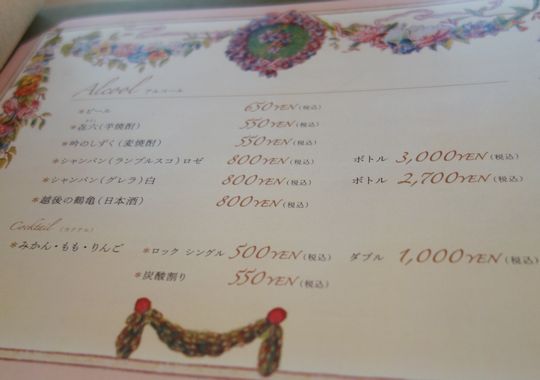 Alcool アルコール
*ビール 650YEN(税込)
*㐂六(芋焼酎) 550YEN(税込)
*吟のしずく(麦焼酎) 550YEN(税込)
*シャンパン(ランブルスコ)ロゼ 800YEN(税込) ボトル 3,000YEN(税込)
*シャンパン(グレラ)白 800YEN(税込) ボトル 2,700YEN(税込)
*越後の鶴亀(日本酒) 800YEN(税込)
Cocktail (カクテル)
*みかん・もも・りんご *ロック シングル 500YEN(税込) ダブル 1,000YEN(税込)
*炭酸割り 550YEN(税込)